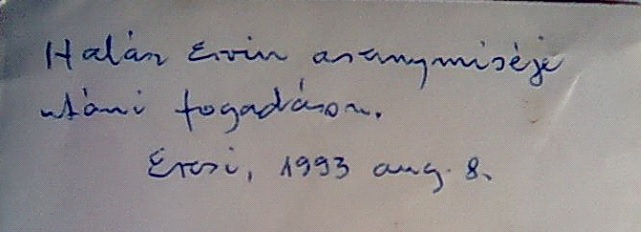 Halász Ervin aranymiséje
utáni fogadáson.
Ercsi, 1993 aug. 8.